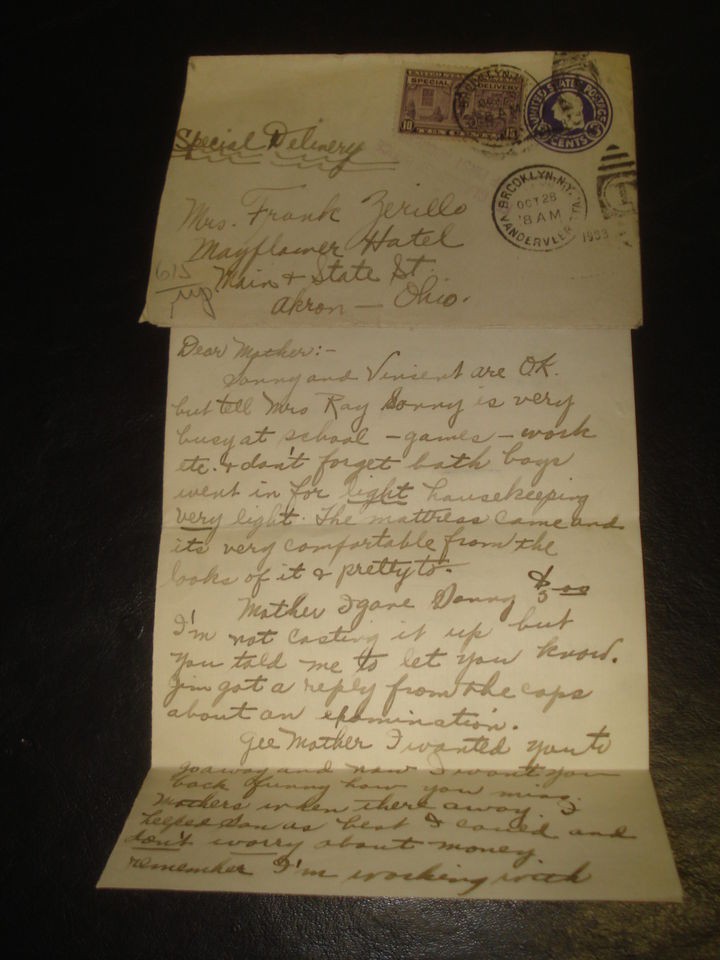 UNITED STATES
SPECIAL DELIVERY
10 TEN CENTS 10
BROOKLYN, N.Y.
OCT
UNITED STATES POSTAGE
3 CENTS 3
Special Delivery
BROOKLYN, N.Y.
OCT 28
8 AM
VANDERVEER STA.
1933
Mrs. Frank Zerillo
Mayflower Hotel
615
Main & State St.
Akron — Ohio.
Dear Mother:-
Sonny and Vinsent are O.K.
but tell Mrs Ray Sonny is very
busy at school - games - work
etc. & don't forget both boys
went in for light housekeeping
very light. The mattress came and
its very comfortable from the
looks of it & pretty to.
Mother I gave Sonny $5.00
I'm not casting it up but
you told me to let you know.
Jim got a reply from the cops
about an examination.
Gee Mother I wanted you to
go away and now I want you
back funny how you miss
Mothers when there away. I
helped Son as best I could and
don't worry about money
remember I'm working with